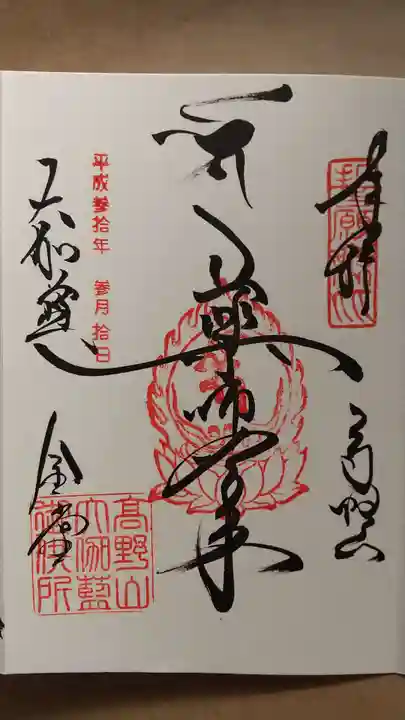 奉拝
高野山
薬師如来
平成参拾年 参月拾日
大伽藍
金堂
髙野山
大伽藍
御供所